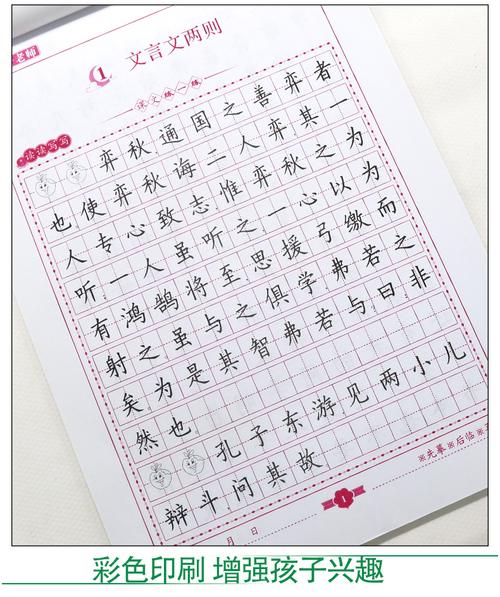 老师
1 文言文两则
课文练一练
读读写写
弈秋通国之善弈者
也使弈秋诲二人弈其一
人专心致志惟弈秋之为
听一人虽听之一心以为
有鸿鹄将至思援弓缴而
射之虽与之俱学弗若之
矣为是其智弗若与曰非
然也
孔子东游见两小儿
辩斗问其故
月 日
1
※先摹※后临※
彩色印刷 增强孩子兴趣